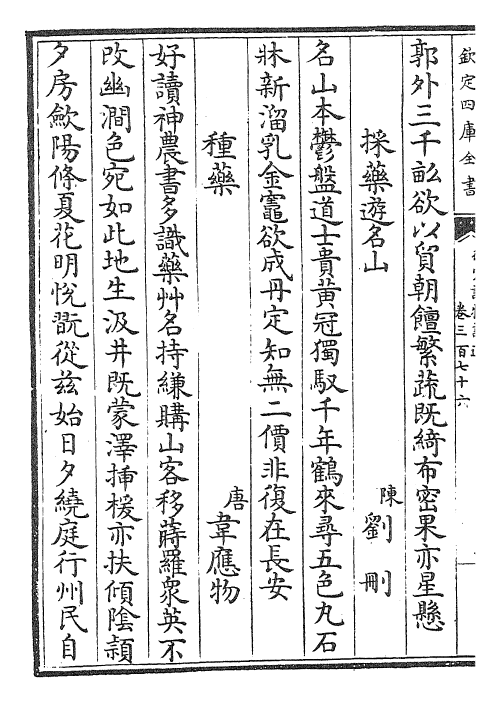 欽定四庫全書
卷三百七十六
郭外三千畝欲以貿朝饘繁蔬既綺布密果亦星懸
採藥遊名山
陳劉刪
名山本鬱盤道士貴黄冠獨馭千年鶴來尋五色丸石
牀新溜乳金竈欲成丹定知無二價非復在長安
種藥
唐韋應物
好讀神農書多識藥艸名持縑購山客移蒔羅衆英不
改幽澗色宛如此地生汲井既蒙澤揷楥亦扶傾陰穎
夕房歛陽條夏花明悅翫從兹始日夕繞庭行州民自